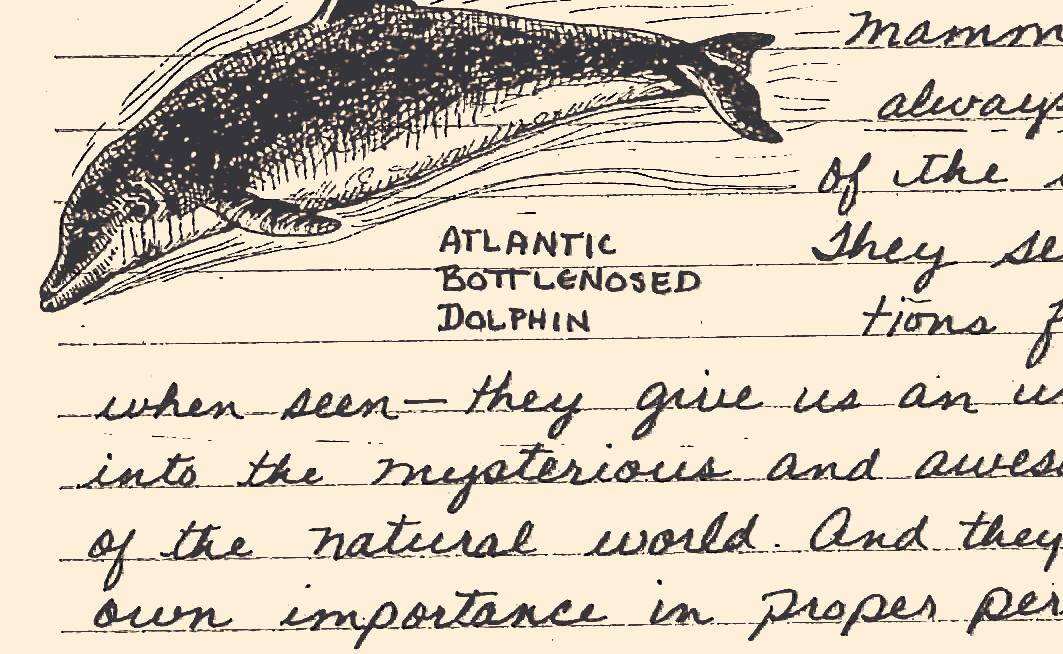 Mamm
always
of the
ATLANTIC
They se
BOTTLENOSED
DOLPHIN
tions
when seen— they give us an u
into the mysterious and awes
of the natural world. And they
own importance in proper per